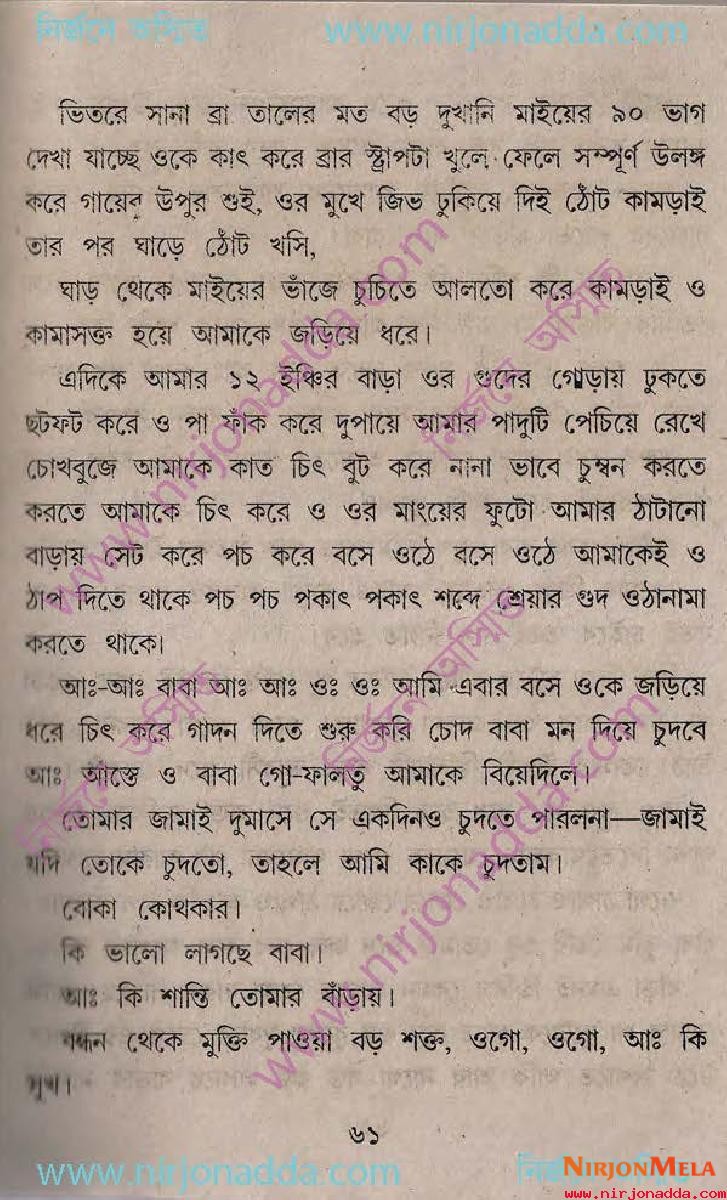 নির্জনে অস্মিত www.nirjonadda.com
ভিতরে সানা ব্রা তালের মত বড় দুখানি মাইয়ের ৯০ ভাগ
দেখা যাচ্ছে ওকে কাৎ করে ব্রার স্ট্রাপটা খুলে ফেলে সম্পূর্ণ উলঙ্গ
করে গায়ের উপুর শুই, ওর মুখে জিভ ঢুকিয়ে দিই ঠোঁট কামড়াই
তার পর ঘাড়ে ঠোঁট খসি,
ঘাড় থেকে মাইয়ের ভাঁজে চুচিতে আলতো করে কামড়াই ও
কামাসক্ত হয়ে আমাকে জড়িয়ে ধরে।
এদিকে আমার ১২ ইঞ্চির বাড়া ওর গুদের গোড়ায় ঢুকতে
ছটফট করে ও পা ফাঁক করে দুপায়ে আমার পাদুটি পেচিয়ে রেখে
চোখবুজে আমাকে কাত চিৎ বুট করে নানা ভাবে চুম্বন করতে
করতে আমাকে চিৎ করে ও ওর মাংয়ের ফুটো আমার ঠাটানো
বাড়ায় সেট করে পচ করে বসে ওঠে বসে ওঠে আমাকেই ও
ঠাপ দিতে থাকে পচ পচ পকাৎ পকাৎ শব্দে শ্রেয়ার গুদ ওঠানামা
করতে থাকে।
আঃ-আঃ বাবা আঃ আঃ ওঃ ওঃ আমি এবার বসে ওকে জড়িয়ে
ধরে চিৎ করে গাদন দিতে শুরু করি চোদ বাবা মন দিয়ে চুদবে
আঃ আস্তে ও বাবা গো-ফালতু আমাকে বিয়েদিলে।
তোমার জামাই দুমাসে সে একদিনও চুদতে পারলনা—জামাই
যদি তোকে চুদতো, তাহলে আমি কাকে চুদতাম।
বোকা কোথকার।
কি ভালো লাগছে বাবা।
আঃ কি শান্তি তোমার বাঁড়ায়।
বন্ধন থেকে মুক্তি পাওয়া বড় শক্ত, ওগো, ওগো, আঃ কি
সুখ।
৬১
www.nirjonadda.com
NIRJONMELA
www.nirjonadda.com